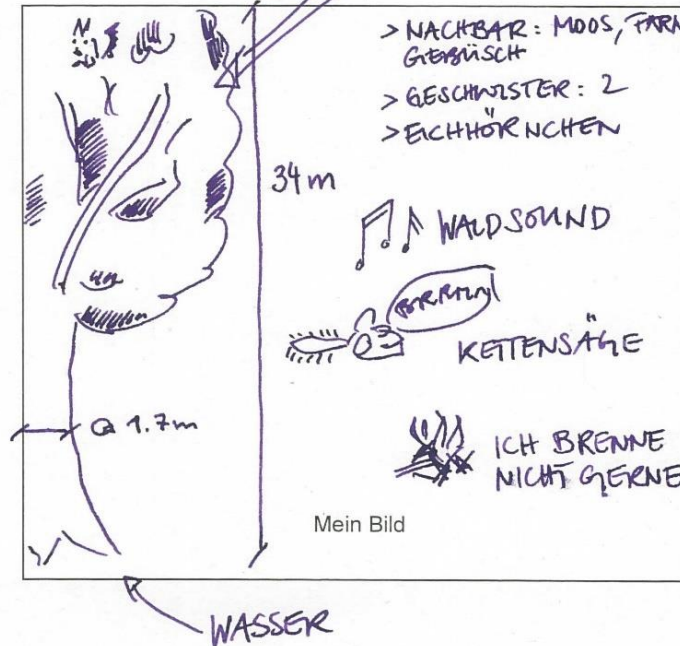 > NACHBAR: MOOS, FARN
GEBÜSCH
> GESCHWISTER: 2
> EICHHÖRNCHEN
34 m
WALDSOUND
KETTENSÄGE
1.7m
ICH BRENNE
NICHT GERNE
Mein Bild
WASSER